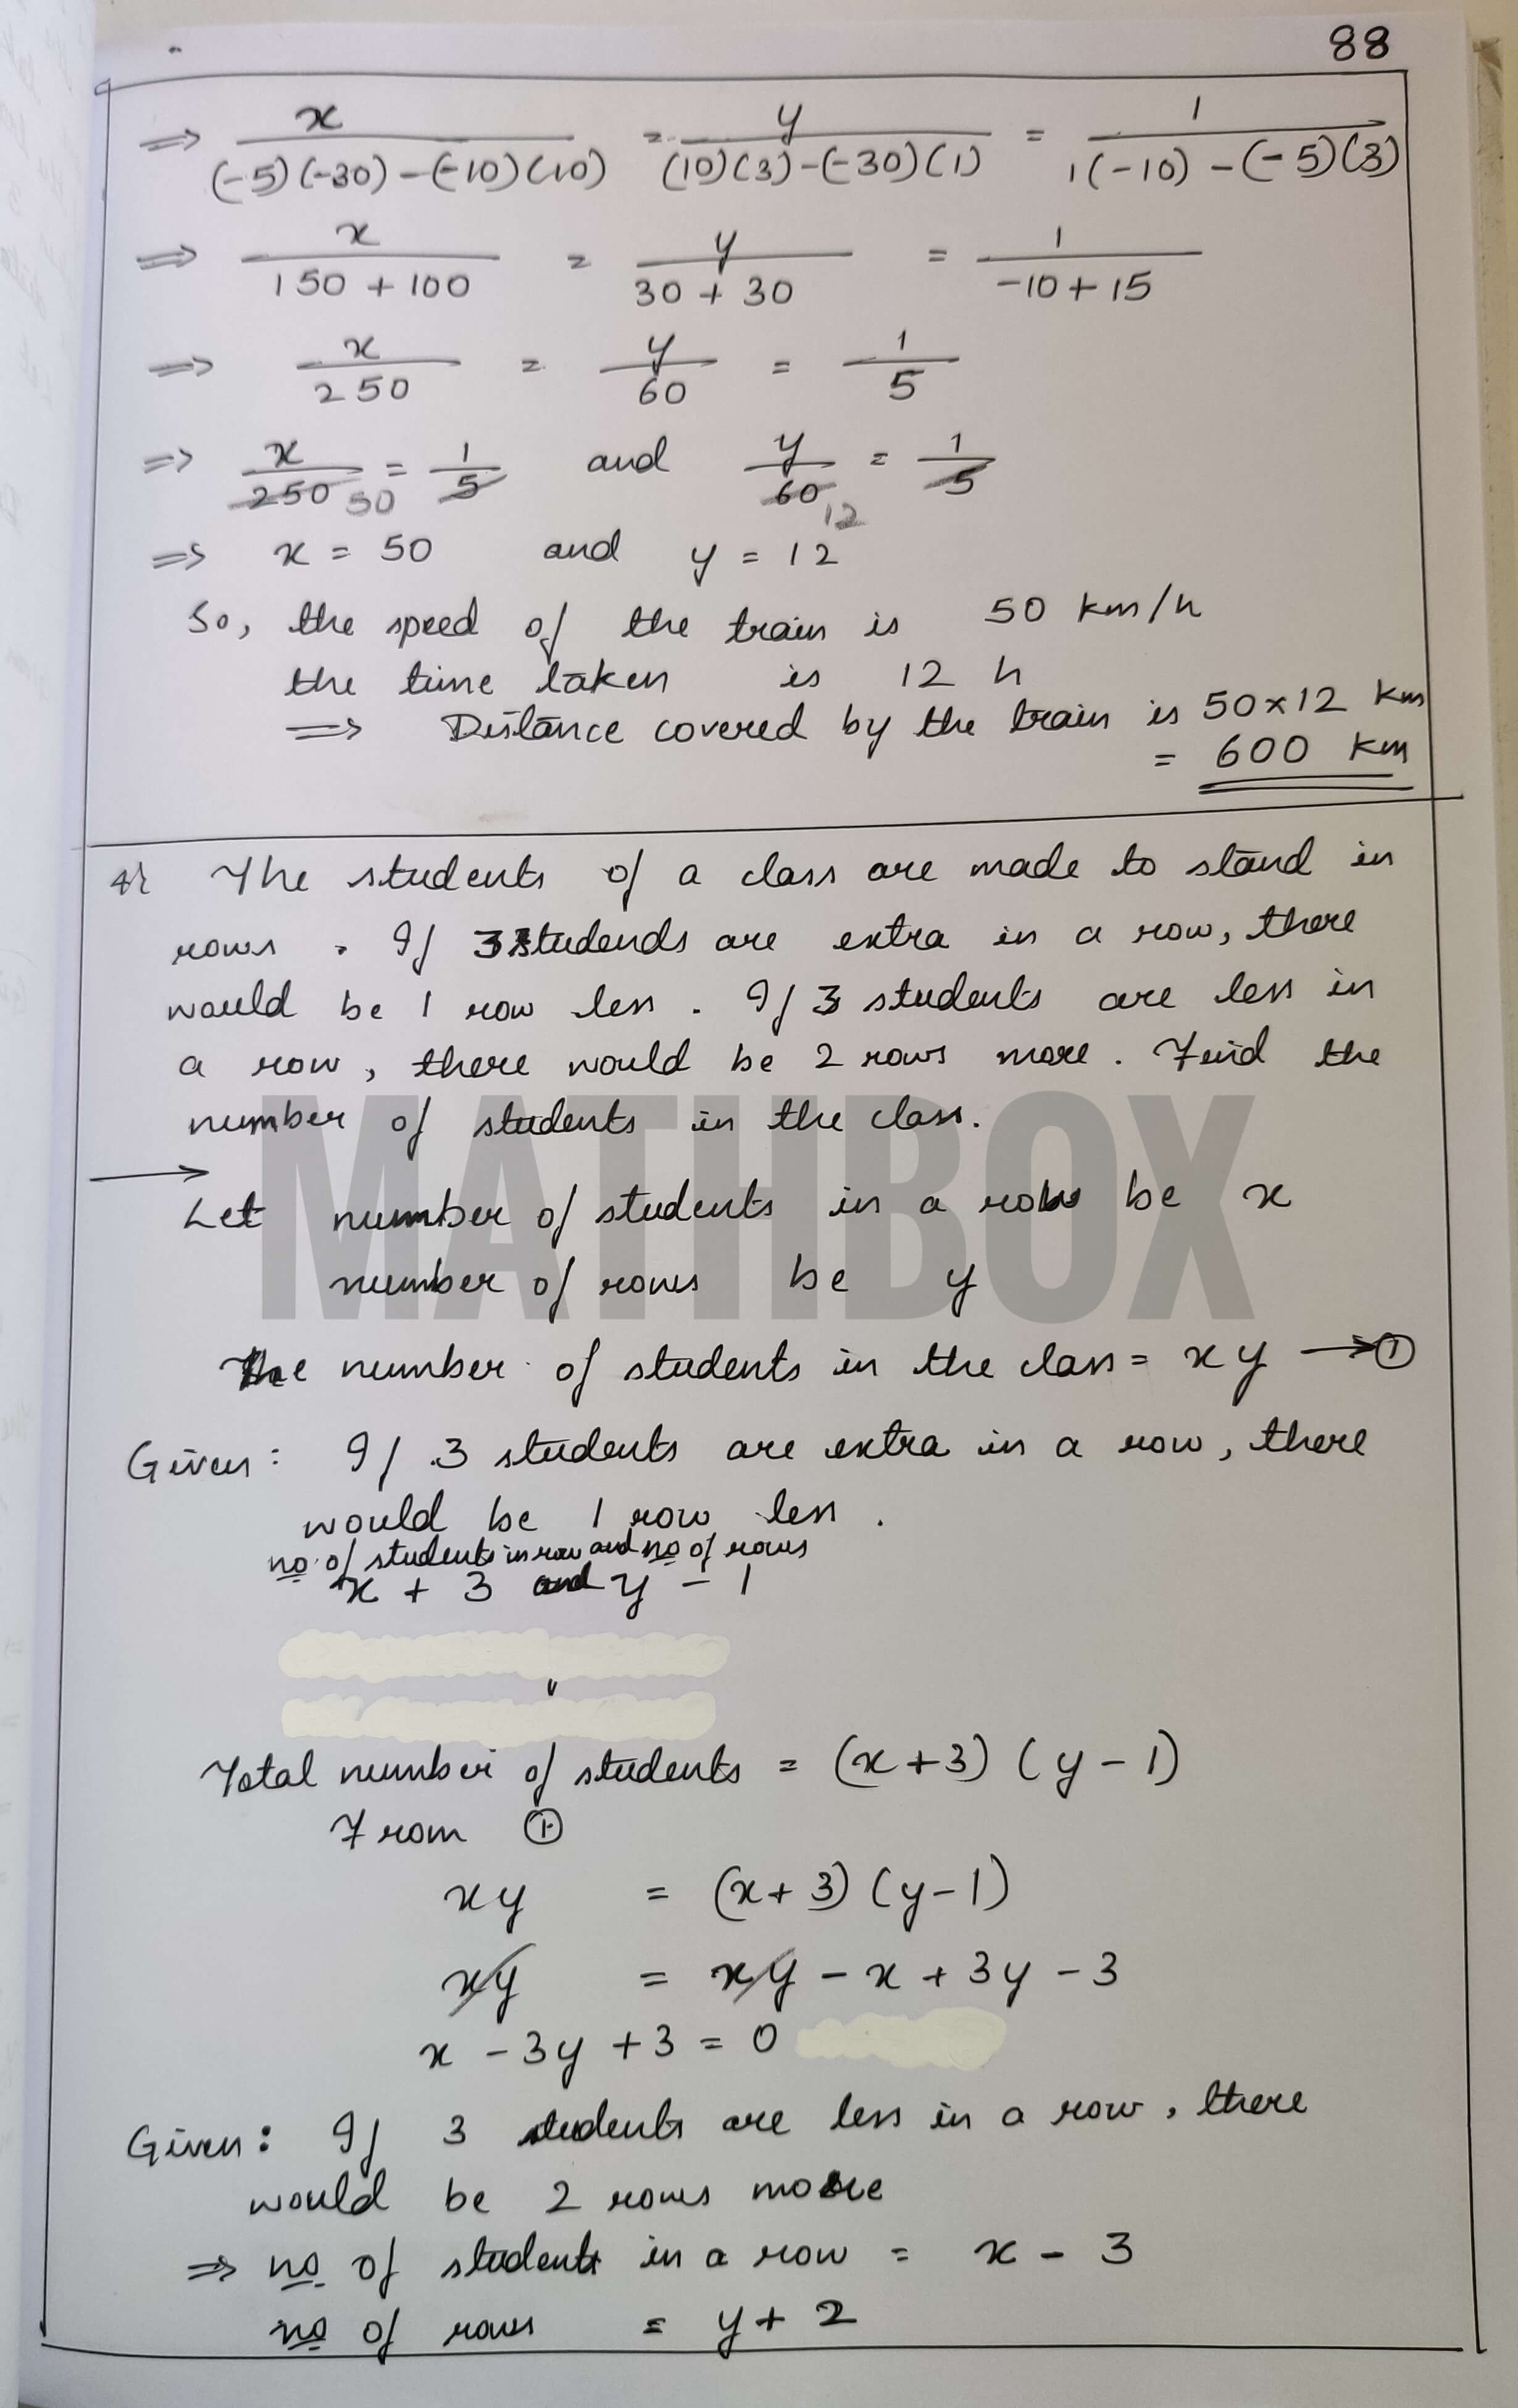 88
⇒ x/((-5)(-30)-(-10)(10)) = y/((10)(3)-(-30)(1)) = 1/(1(-10)-(-5)(3))
⇒ x/(150+100) = y/(30+30) = 1/(-10+15)
⇒ x/250 = y/60 = 1/5
⇒ x/250 50 = 1/5 and y/60 12 = 1/5
⇒ x = 50 and y = 12
So, the speed of the train is 50 km/h
the time taken is 12 h
⇒ Distance covered by the train is 50×12 km
= 600 km
The students of a class are made to stand in
rows. If 3 studends are extra in a row, there
would be 1 row less. If 3 students are less in
a row, there would be 2 rows more. Find the
number of students in the class.
MATHBOX
→ Let number of students in a row be x
number of rows be y
The number of students in the class = xy → ①
Given: If 3 students are extra in a row, there
would be 1 row less.
no. of students in row and no of rows
x + 3 and y - 1
Total number of students = (x+3) (y-1)
From ①
xy = (x+3) (y-1)
xy = xy - x + 3y - 3
x - 3y + 3 = 0
Given: If 3 students are less in a row, there
would be 2 rows more
⇒ no. of students in a row = x - 3
no of rows = y + 2